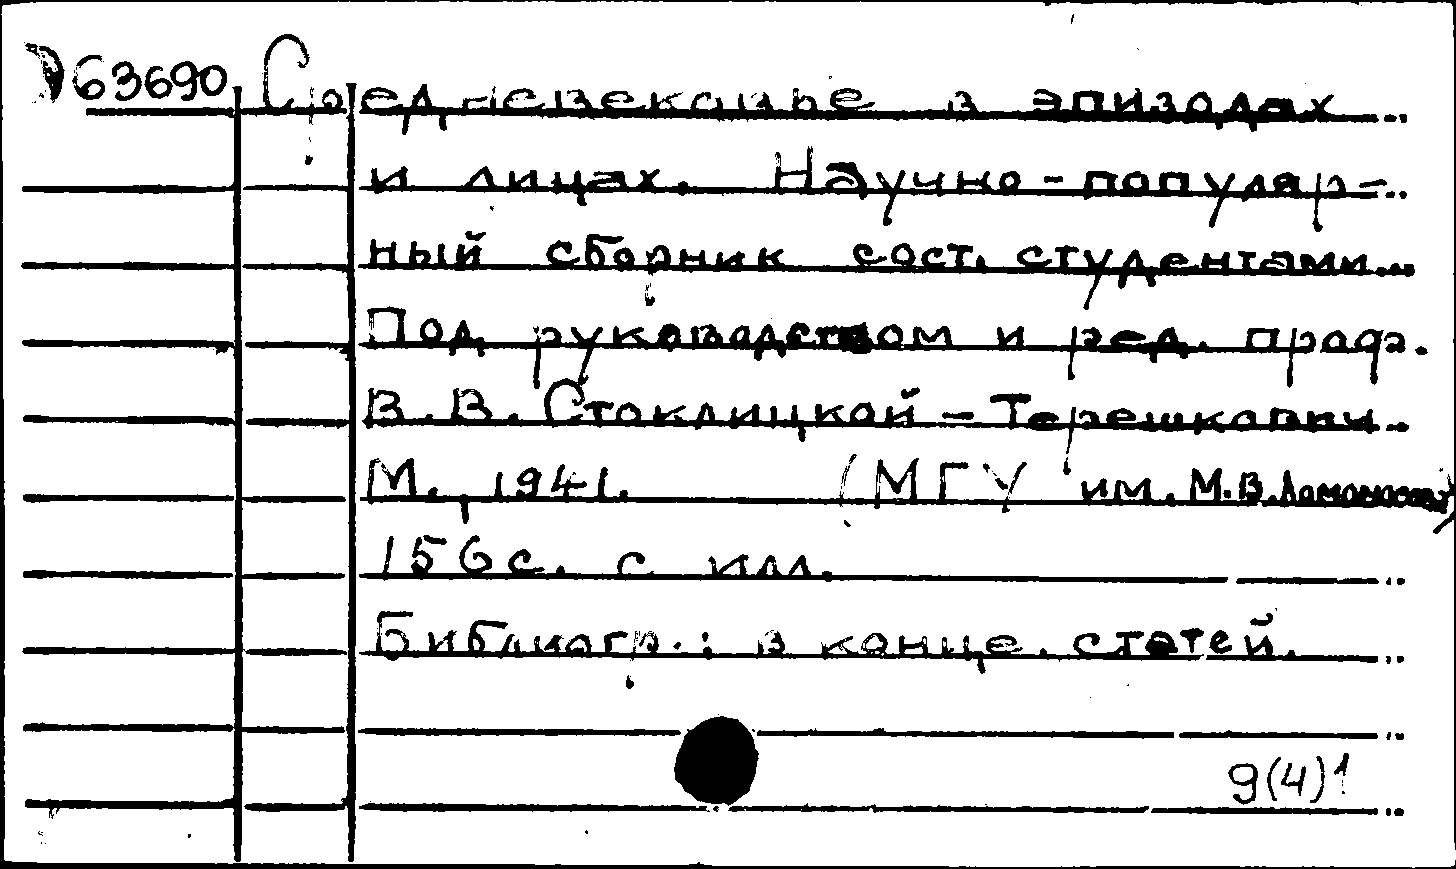 63690 Средневековье в эпизодах
и лицах. Научно-популяр-
ный сборник сост. студентами
Под руководством и ред. проф.
В.В. Стоклицкой-Терешкович
М., 1941. (МГУ им. М.В.Ломоносова)
156с. с илл.
Библиогр.: в конце статей.
9(4)1